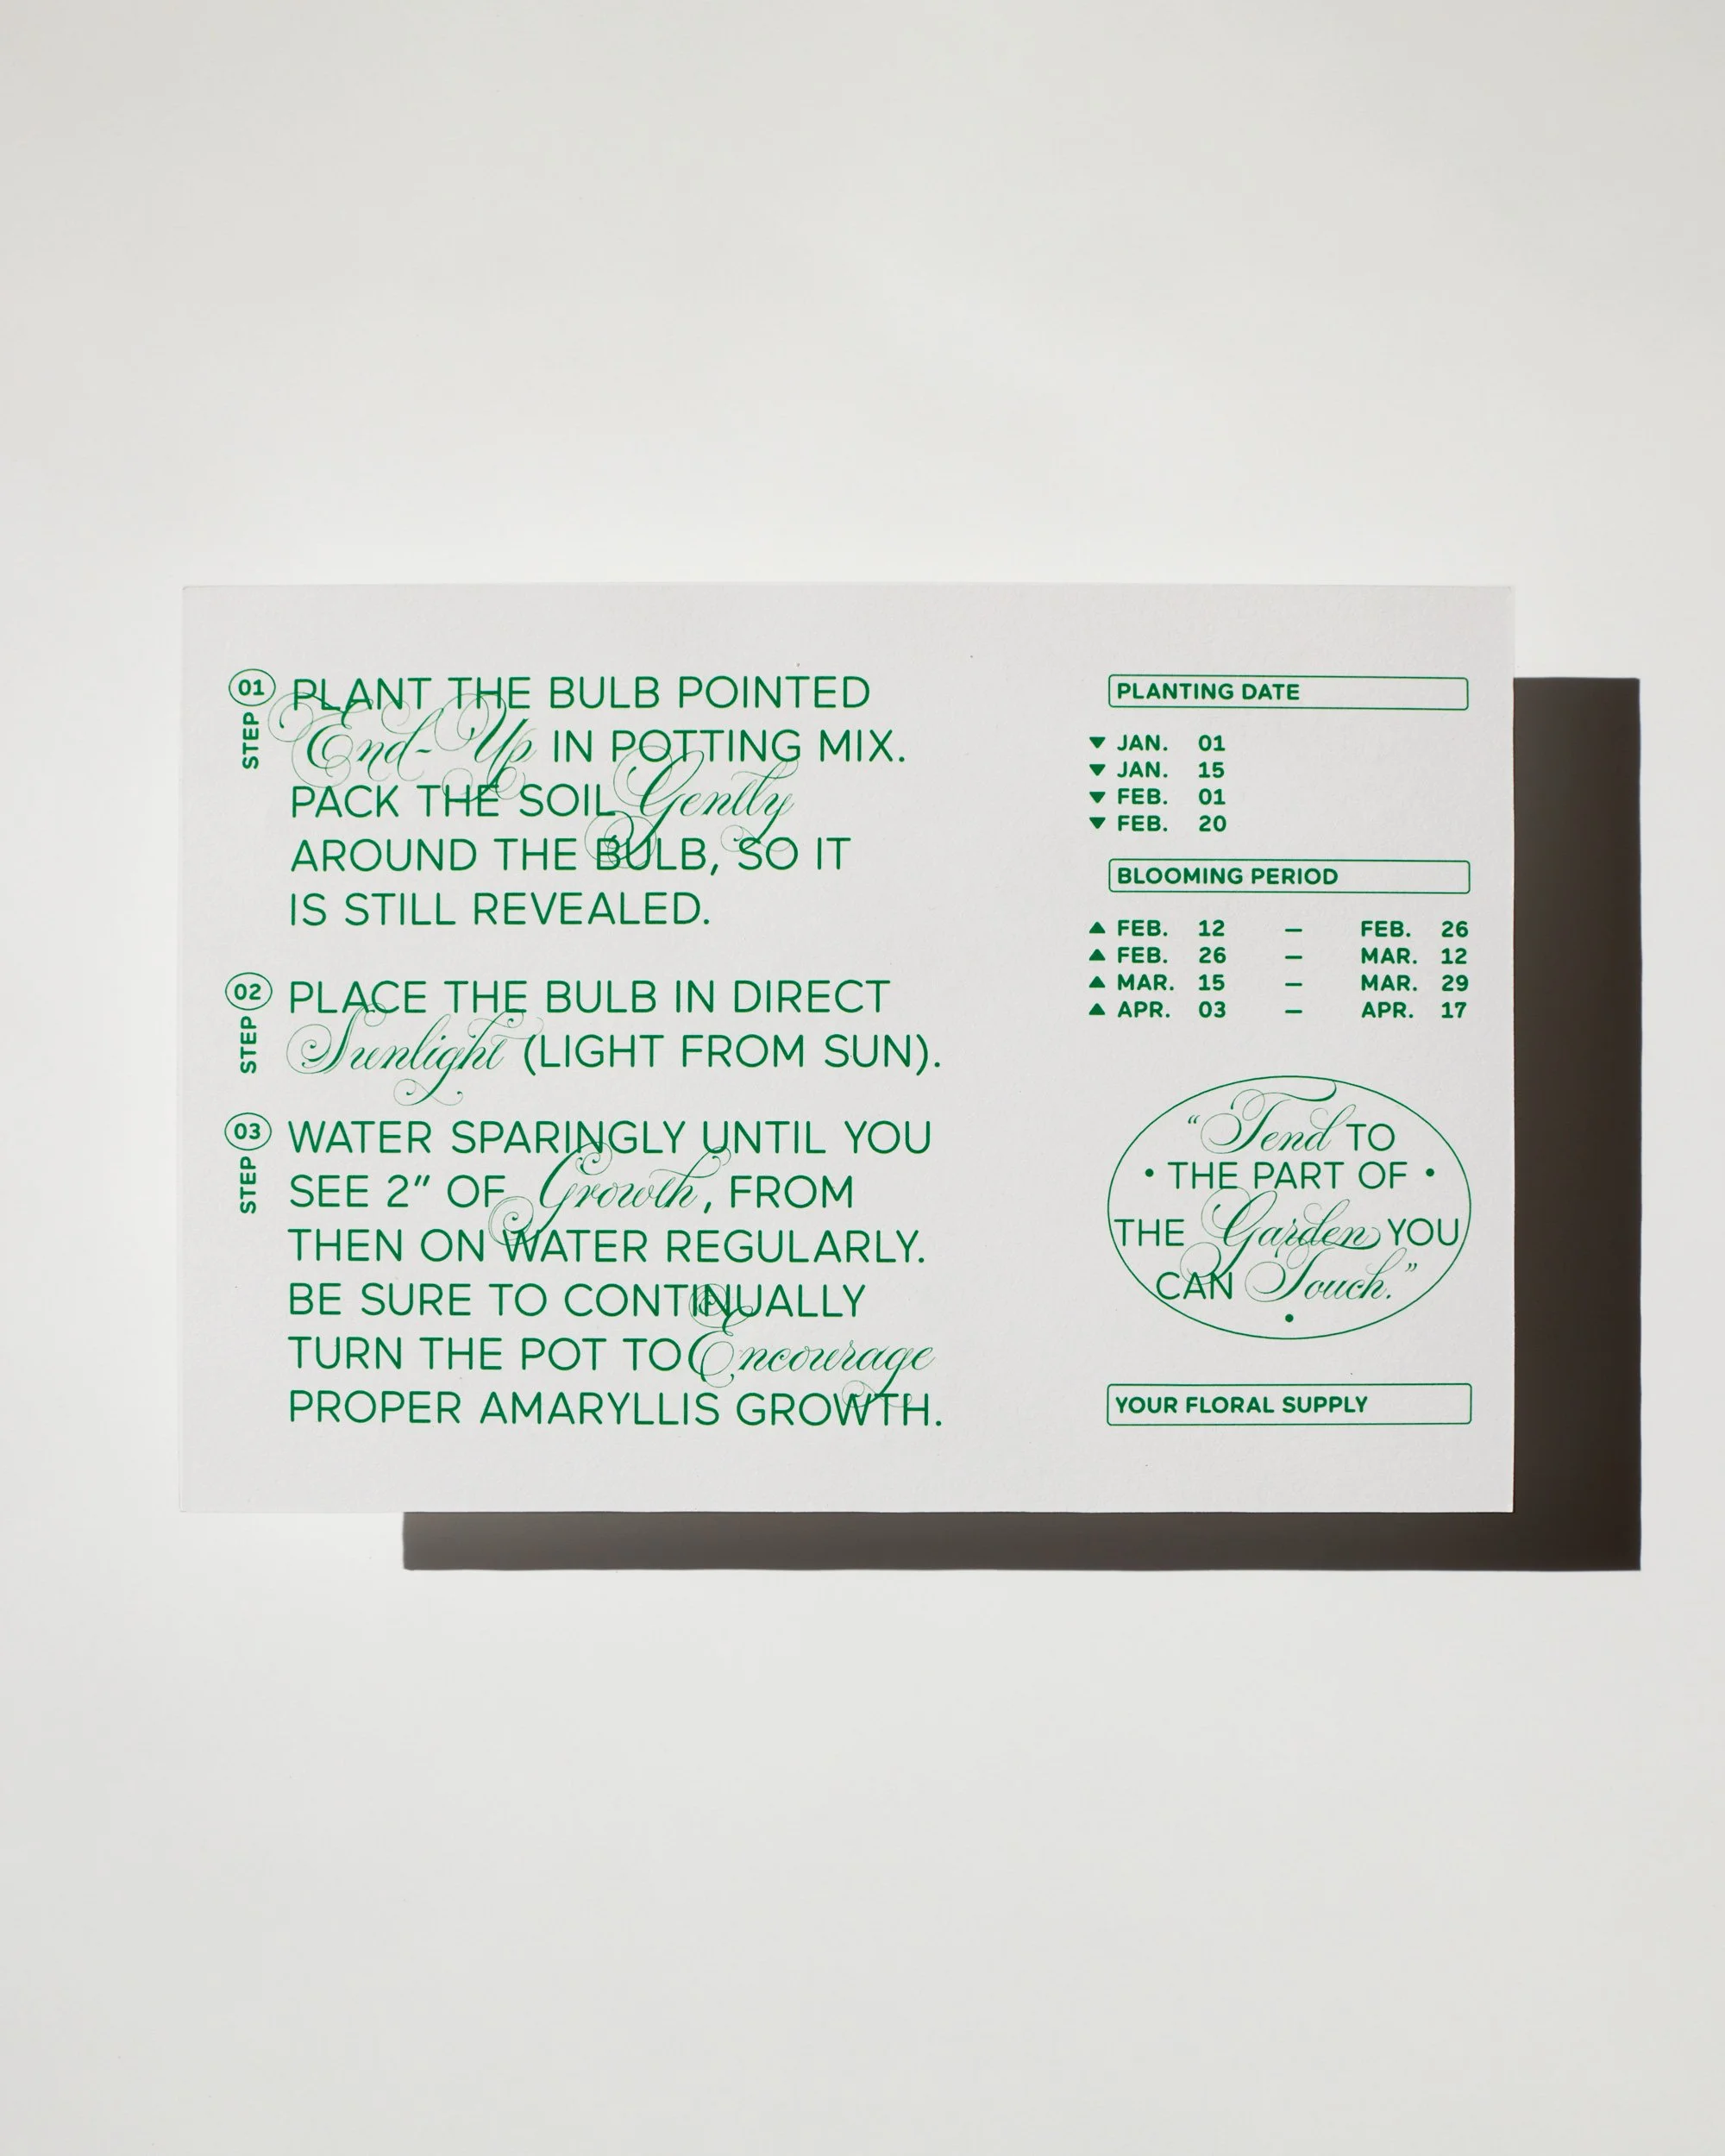 01 STEP
PLANT THE BULB POINTED
End-Up IN POTTING MIX.
PACK THE SOIL Gently
AROUND THE BULB, SO IT
IS STILL REVEALED.
02 STEP
PLACE THE BULB IN DIRECT
Sunlight (LIGHT FROM SUN).
03 STEP
WATER SPARINGLY UNTIL YOU
SEE 2” OF Growth, FROM
THEN ON WATER REGULARLY.
BE SURE TO CONTINUALLY
TURN THE POT TO Encourage
PROPER AMARYLLIS GROWTH.
PLANTING DATE
▼ JAN. 01
▼ JAN. 15
▼ FEB. 01
▼ FEB. 20
BLOOMING PERIOD
▲ FEB. 12 — FEB. 26
▲ FEB. 26 — MAR. 12
▲ MAR. 15 — MAR. 29
▲ APR. 03 — APR. 17
“Tend TO
• THE PART OF •
THE Garden YOU
CAN Touch.”
•
YOUR FLORAL SUPPLY